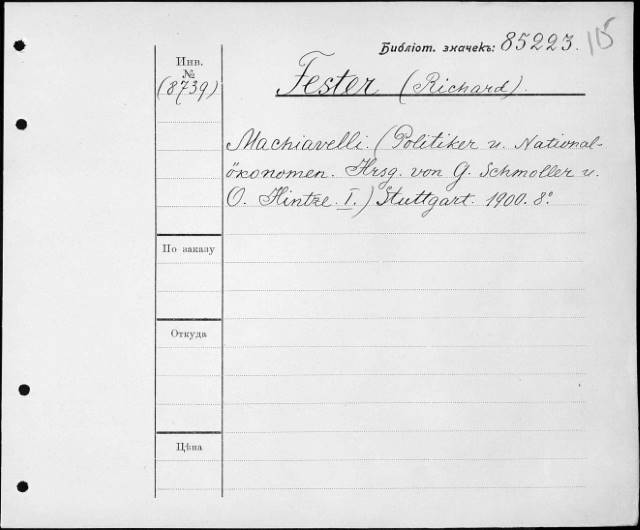 Библіот. значекъ: 85223. 115
Инв.
№
(8739)
Fester (Richard).
Machiavelli. (Politiker u. National-
ökonomen. Hrsg. von G. Schmoller u.
O. Hintze. I.) Stuttgart. 1900. 8º.
По заказу
Откуда
Цѣна